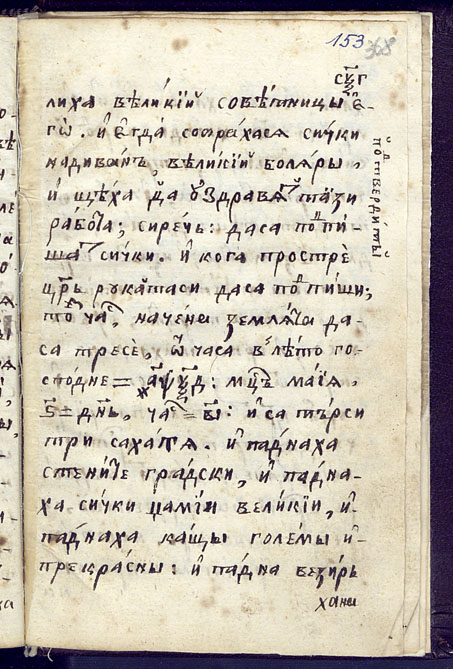 153 368
сѯ҃г
лиха вѣликїй совѣтницы е҆-
гѡ̀. и҆ е҆гда собрахася сички
надивань, вѣликїй боляры,
и҆ щѣха да ѹ҆здравятъ тази
работа; сиречь: даса подпи-
шатъ сички. и҆ кога прострѐ
цр҃ь рукатаси даса подпиши;
то҆ часъ, начена землята да-
са тресѐ, ѿ часа в лѣто го-
сподне = ҂аѱѯ҃д: мц҃ъ маїя,
ѕ҃ = днь, часъ = в҃ı: и҆са търси
три сахатя. и҆ паднаха
стените градски, и҆ падна-
ха сички џамїи великїи, и҆-
паднаха кащы големы и҆-
прекрасны: и҆ падна везирь
хани
подтвердитъ